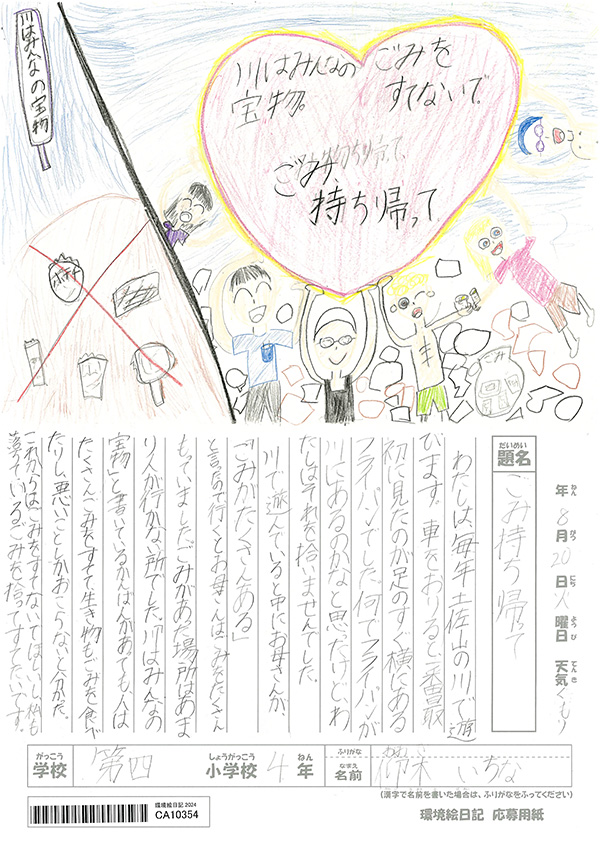 川はみんなの宝物
川はみんなの
宝物。
ごみを
すてないで
ごみ、
持ち帰って
ごみ
年 8月20日 火曜日 天気 くもり
ねん がつ にち ようび てんき
だいめい
題名
ごみ持ち帰って
わたしは、毎年土佐山の川で遊
びます。車をおりると、一番最
初に見たのが足のすぐ横にある
フライパンでした。何でフライパンが
川にあるのかなと思ったけど、わ
たしはそれを拾いませんでした。
川で遊んでいると中にお母さんが、
「ごみがたくさんある」
と言たので行くとお母さんは、ごみをたくさん
もっていました。ごみがあた場所はあま
り人が行かない所でした。「川はみんなの
宝物」と書いているかんばんがあても、人は
たくさんごみをすてて生き物もごみを食べ
たりし、悪いことしかおこらないと分かた。
これからはごみをすてないでほしいし、私も
落ちているごみを拾ってすてたいです。
がっこう
学校
第四
しょうがっこう
小学校
4
ねん
年
ふりがな
なまえ
名前
いちな
(漢字で名前を書いた場合は、ふりがなをふってください)
環境絵日記 2024
CA10354
環境絵日記 応募用紙